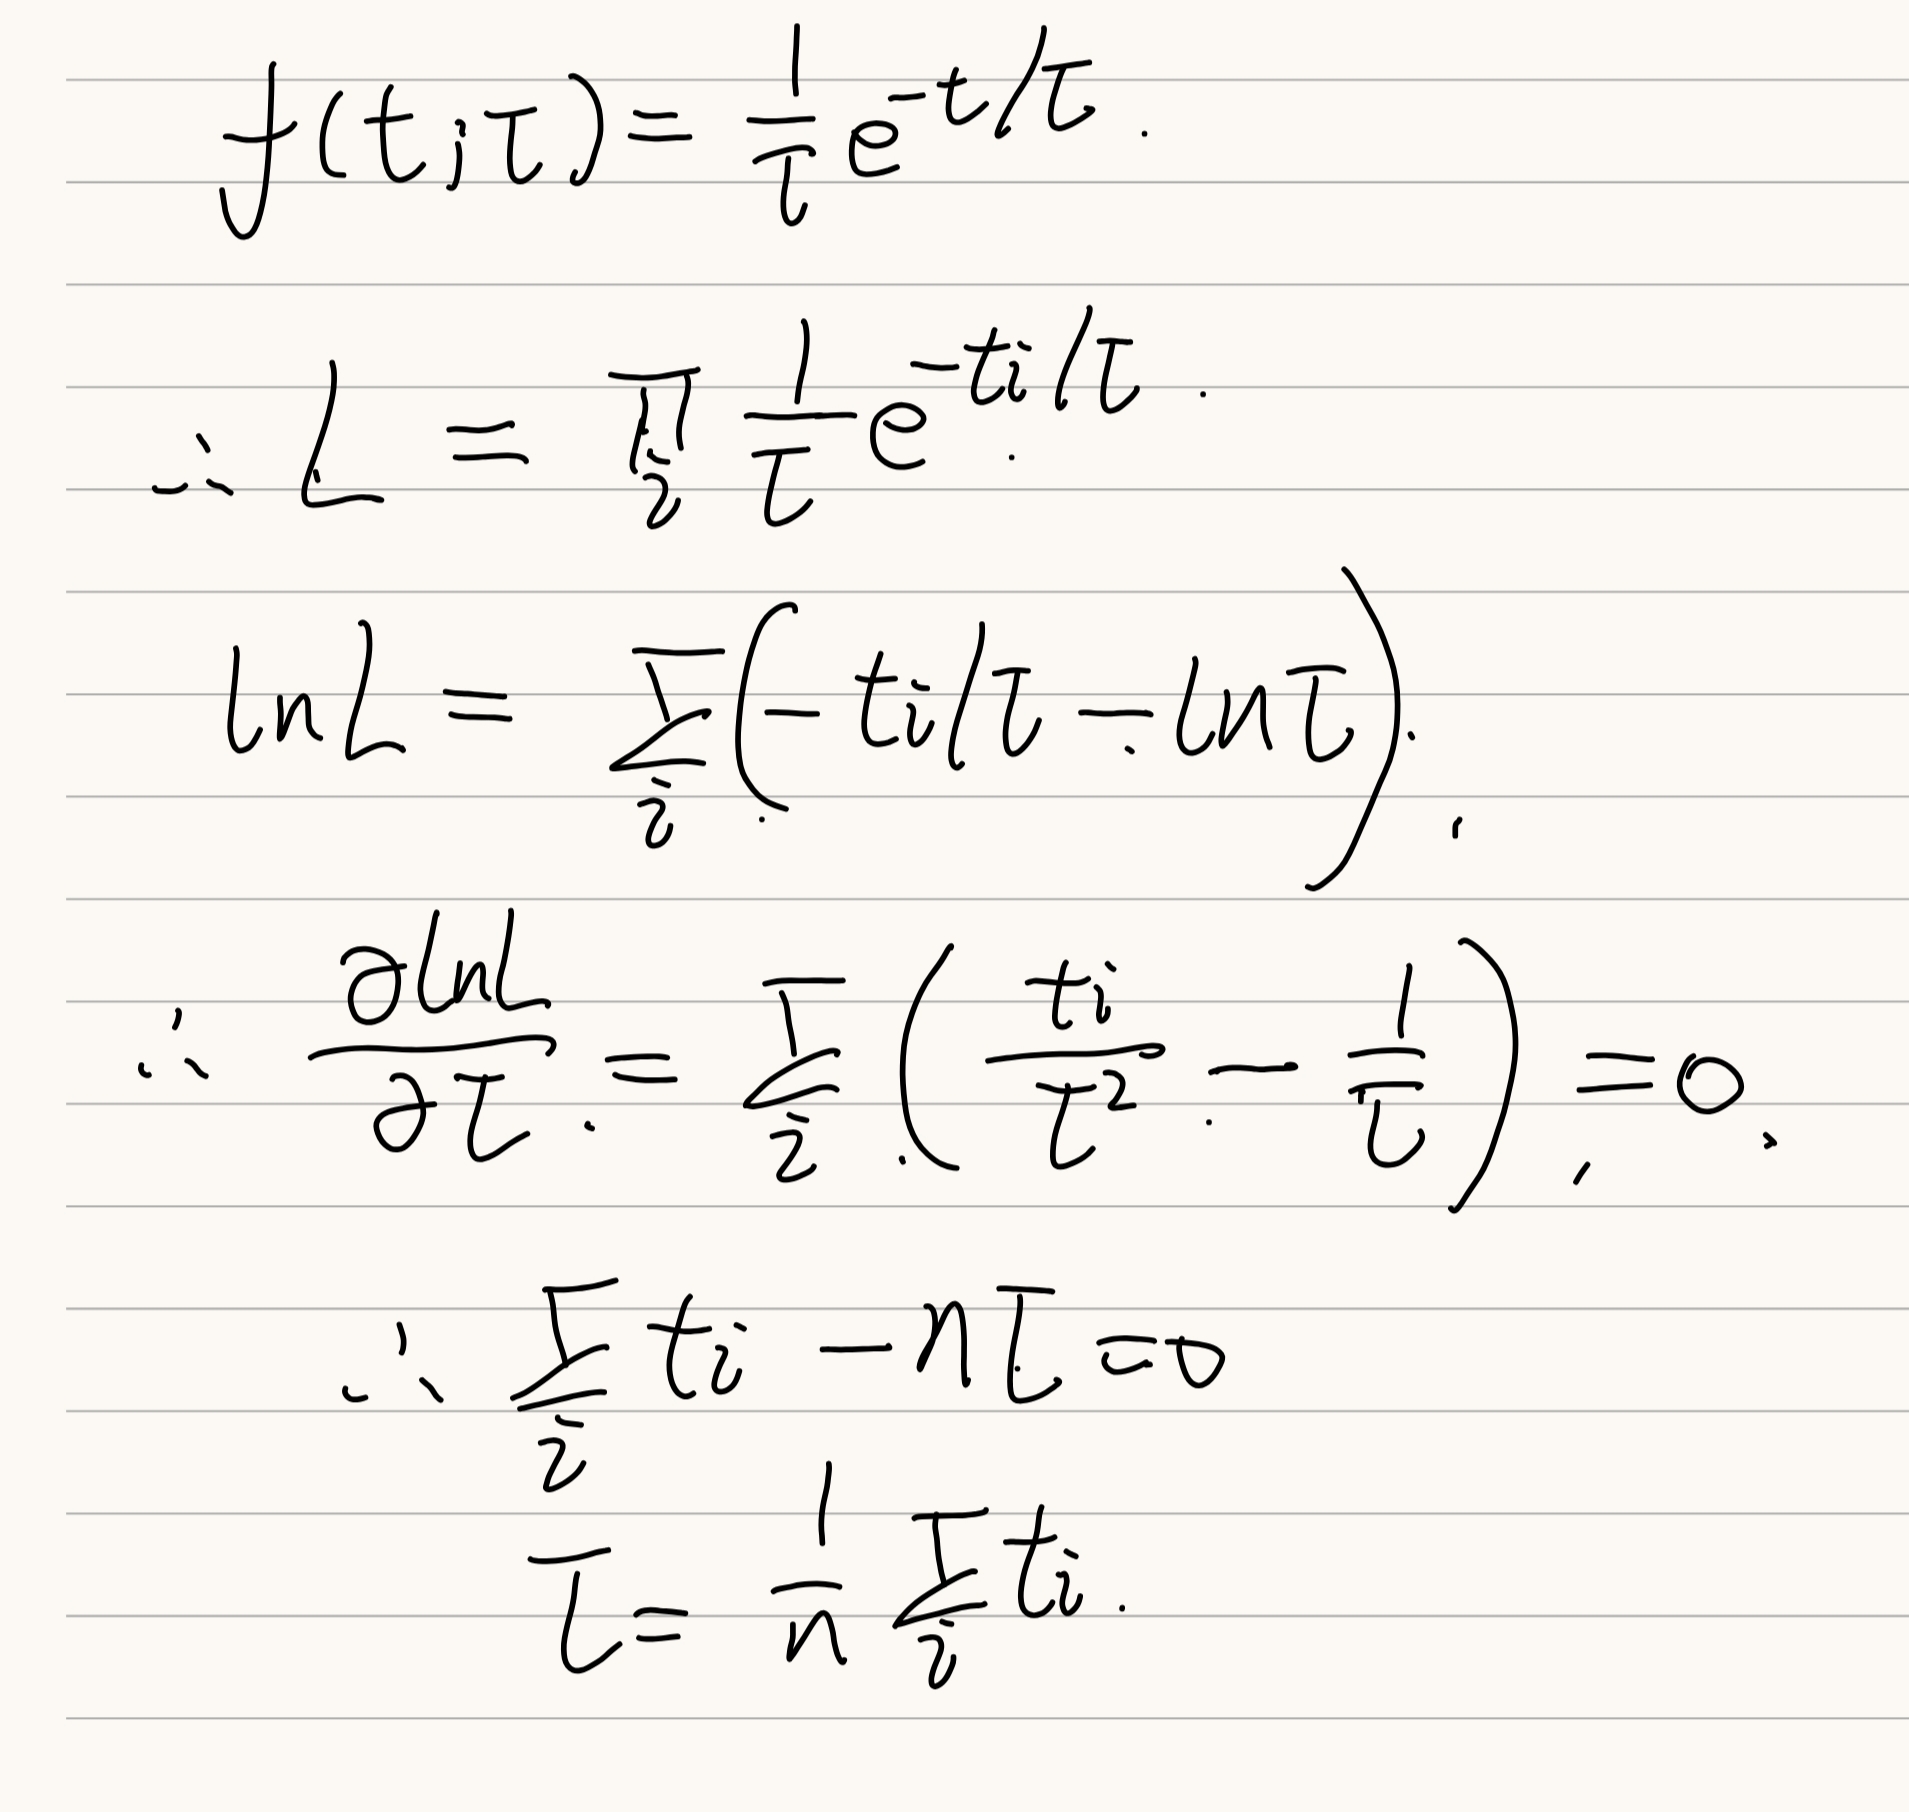 f(t;τ) = 1/τ e^{-t/τ}.
∴ L = ∏_i 1/τ e^{-ti/τ}.
lnL = Σ_i (-ti/τ - lnτ).
∴ ∂lnL/∂τ = Σ_i (ti/τ² - 1/τ) = 0,
∴ Σ_i ti - nτ = 0
τ = 1/n Σ_i ti.